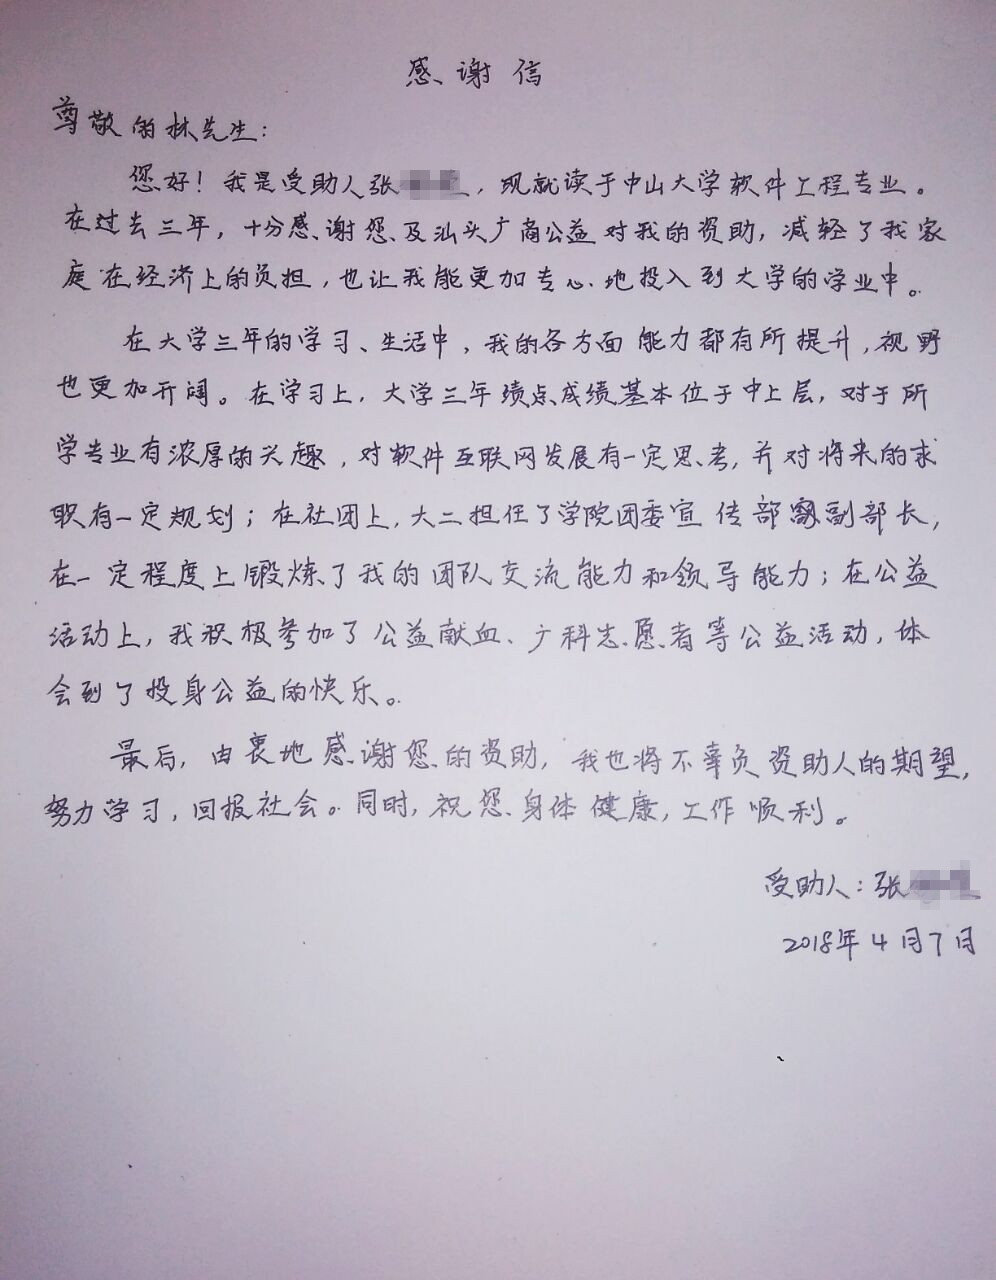 感谢信
尊敬的林先生：
您好！我是受助人张，现就读于中山大学软件工程专业。
在过去三年，十分感谢您及汕头广商公益对我的资助，减轻了我家
庭在经济上的负担，也让我能更加专心地投入到大学的学业中。
在大学三年的学习、生活中，我的各方面能力都有所提升，视野
也更加开阔。在学习上，大学三年绩点成绩基本位于中上层，对于所
学专业有浓厚的兴趣，对软件互联网发展有一定思考，并对将来的求
职有一定规划；在社团上，大二担任了学院团委宣传部副部长，
在一定程度上锻炼了我的团队交流能力和领导能力；在公益
活动上，我积极参加了公益献血、广科志愿者等公益活动，体
会到了投身公益的快乐。
最后，由衷地感谢您的资助，我也将不辜负资助人的期望，
努力学习，回报社会。同时，祝您身体健康，工作顺利。
受助人：张
2018年4月7日